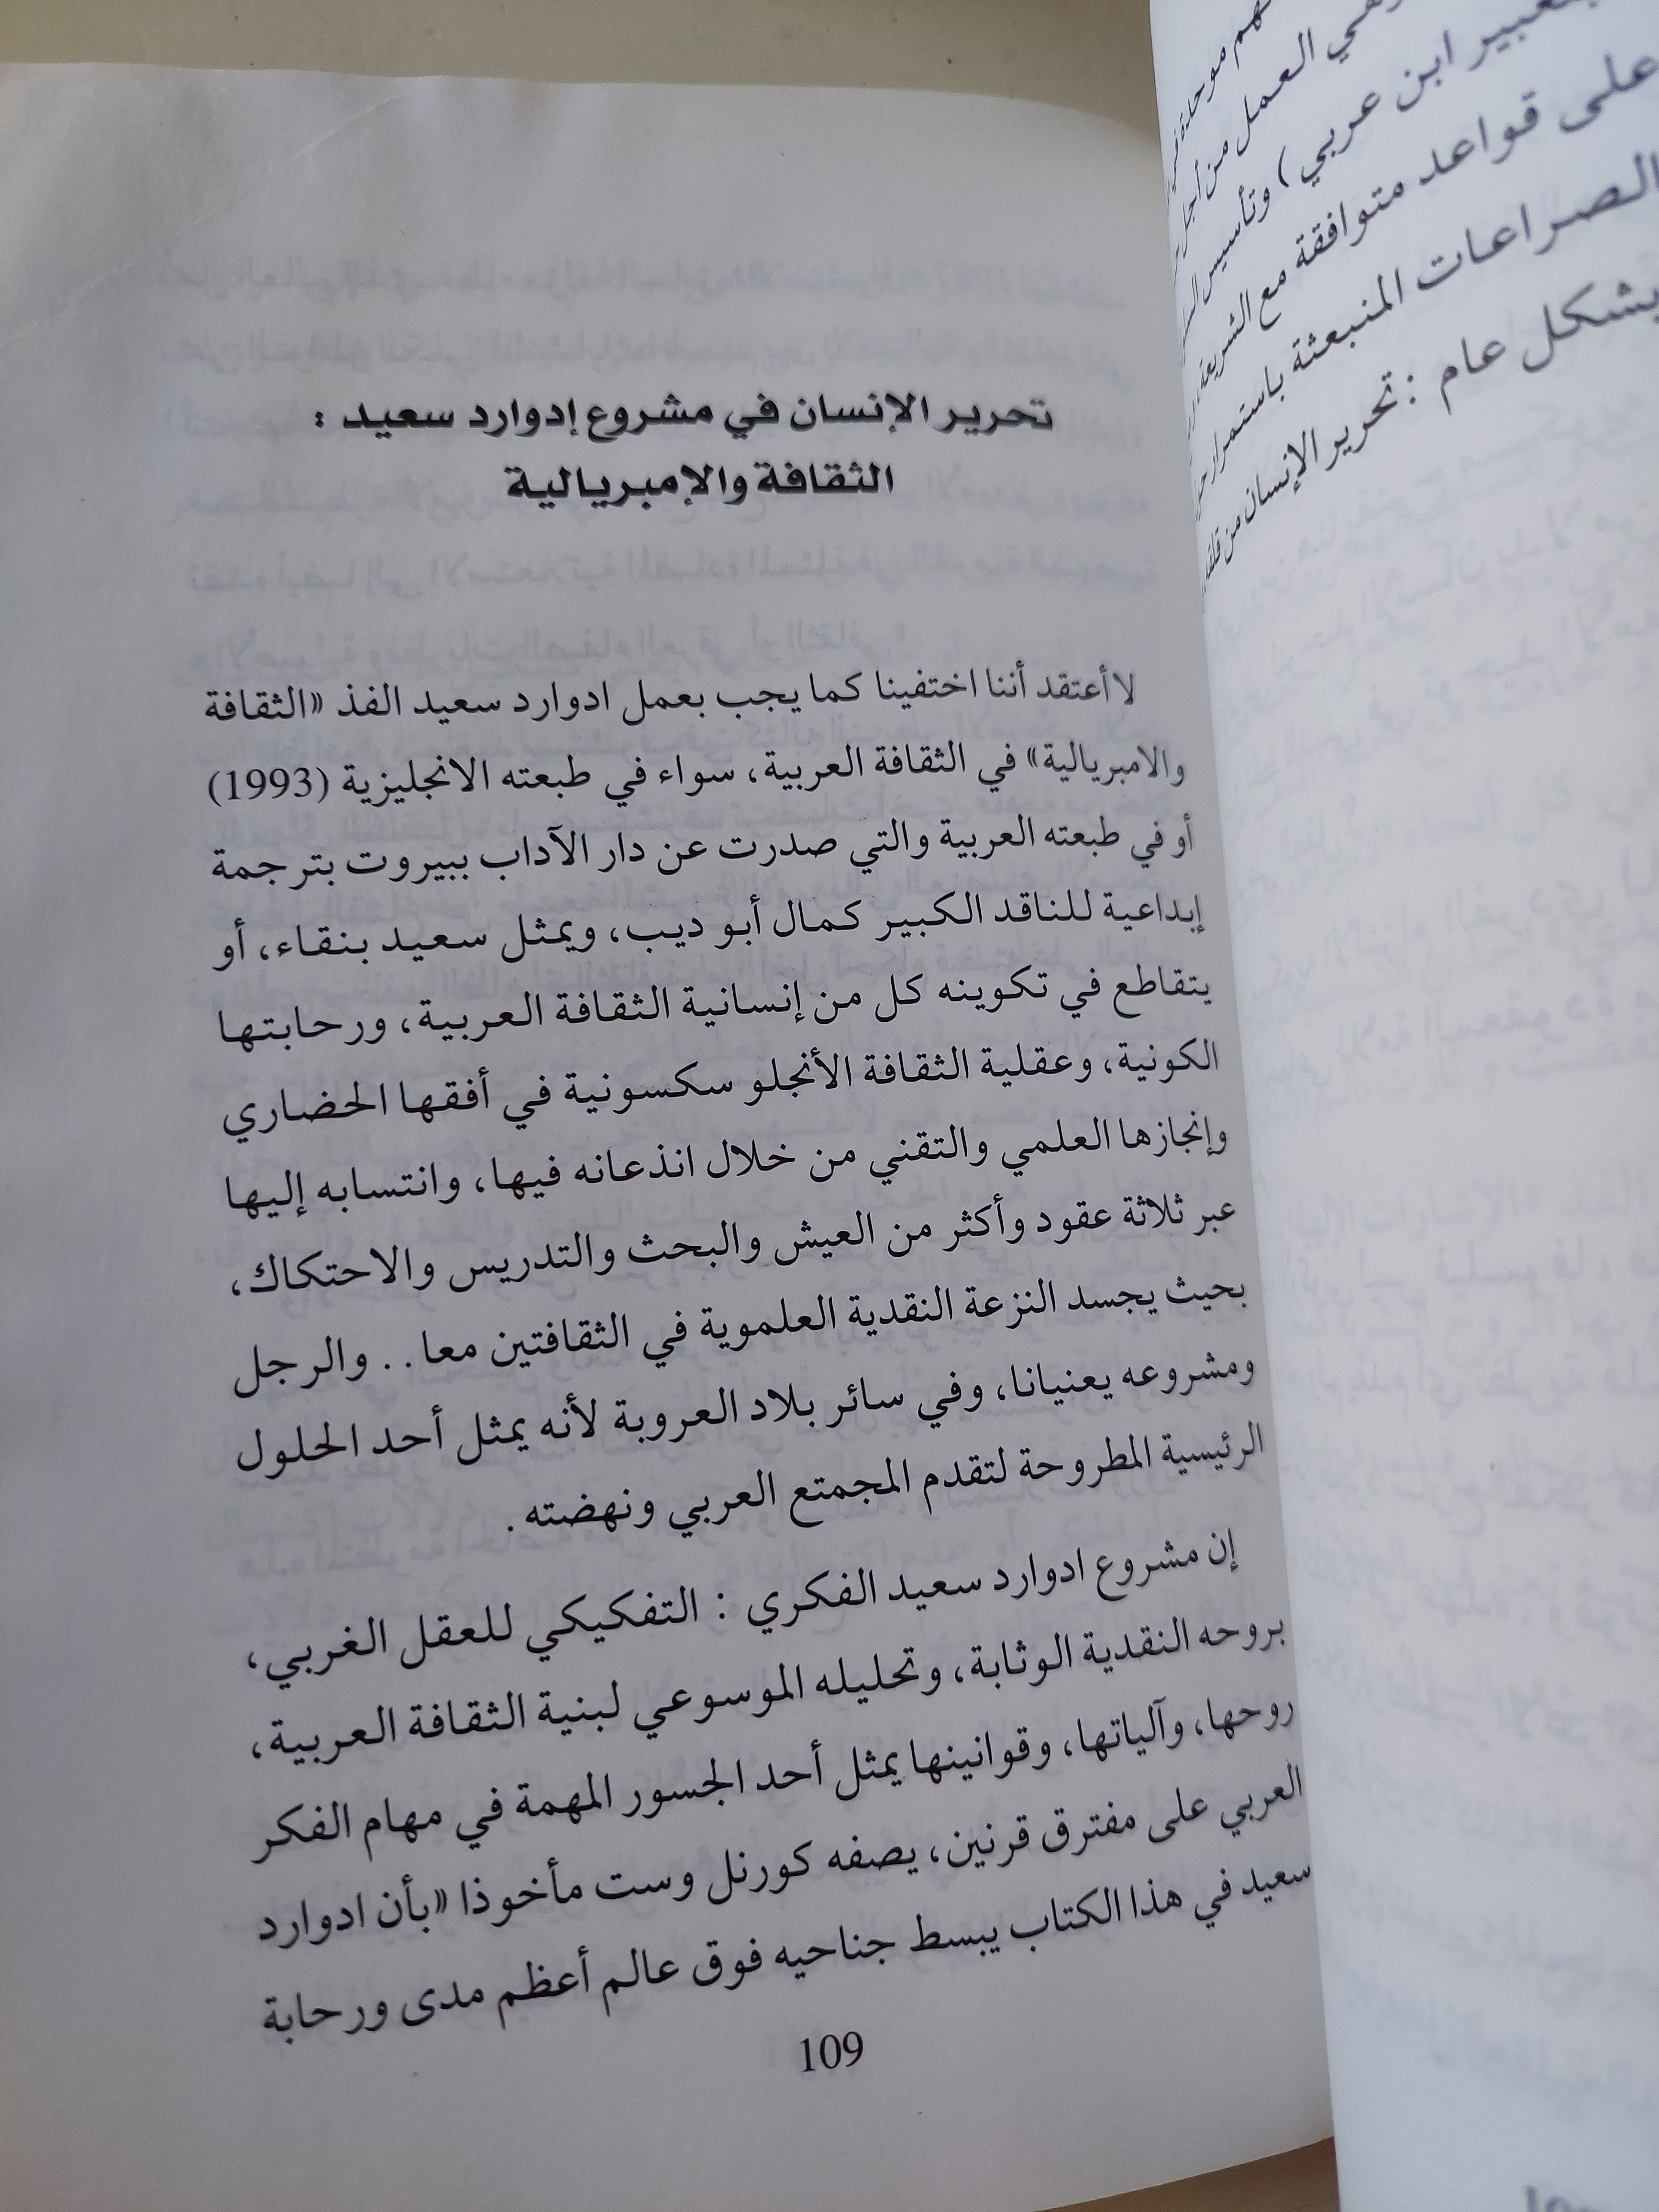 هم موحدة
وهي العمل من أجل
بتعبير ابن عربي) وتأسيس
على قواعد متوافقة مع الشريعة،
الصراعات المنبعثة باستمرار
بشكل عام : تحرير الإنسان من
تحرير الإنسان في مشروع إدوارد سعيد :
الثقافة والإمبريالية
لا أعتقد أننا اختفينا كما يجب بعمل ادوارد سعيد الفذ «الثقافة
والامبريالية» في الثقافة العربية، سواء في طبعته الانجليزية (1993)
أو في طبعته العربية والتي صدرت عن دار الآداب ببيروت بترجمة
إبداعية للناقد الكبير كمال أبو ديب، ويمثل سعيد بنقاء، أو
يتقاطع في تكوينه كل من إنسانية الثقافة العربية، ورحابتها
الكونية، وعقلية الثقافة الأنجلو سكسونية في أفقها الحضاري
وإنجازها العلمي والتقني من خلال انذعانه فيها، وانتسابه إليها
عبر ثلاثة عقود وأكثر من العيش والبحث والتدريس والاحتكاك،
بحيث يجسد النزعة النقدية العلموية في الثقافتين معا . . والرجل
ومشروعه يعنيانا، وفي سائر بلاد العروبة لأنه يمثل أحد الحلول
الرئيسية المطروحة لتقدم المجمتع العربي ونهضته .
إن مشروع ادوارد سعيد الفكري : التفكيكي للعقل الغربي،
بروحه النقدية الوثابة، وتحليله الموسوعي لبنية الثقافة العربية،
روحها، وآلياتها، وقوانينها يمثل أحد الجسور المهمة في مهام الفكر
العربي على مفترق قرنين، يصفه كورنل وست مأخوذا «بأن ادوارد
سعيد في هذا الكتاب يبسط جناحيه فوق عالم أعظم مدى ورحابة
109